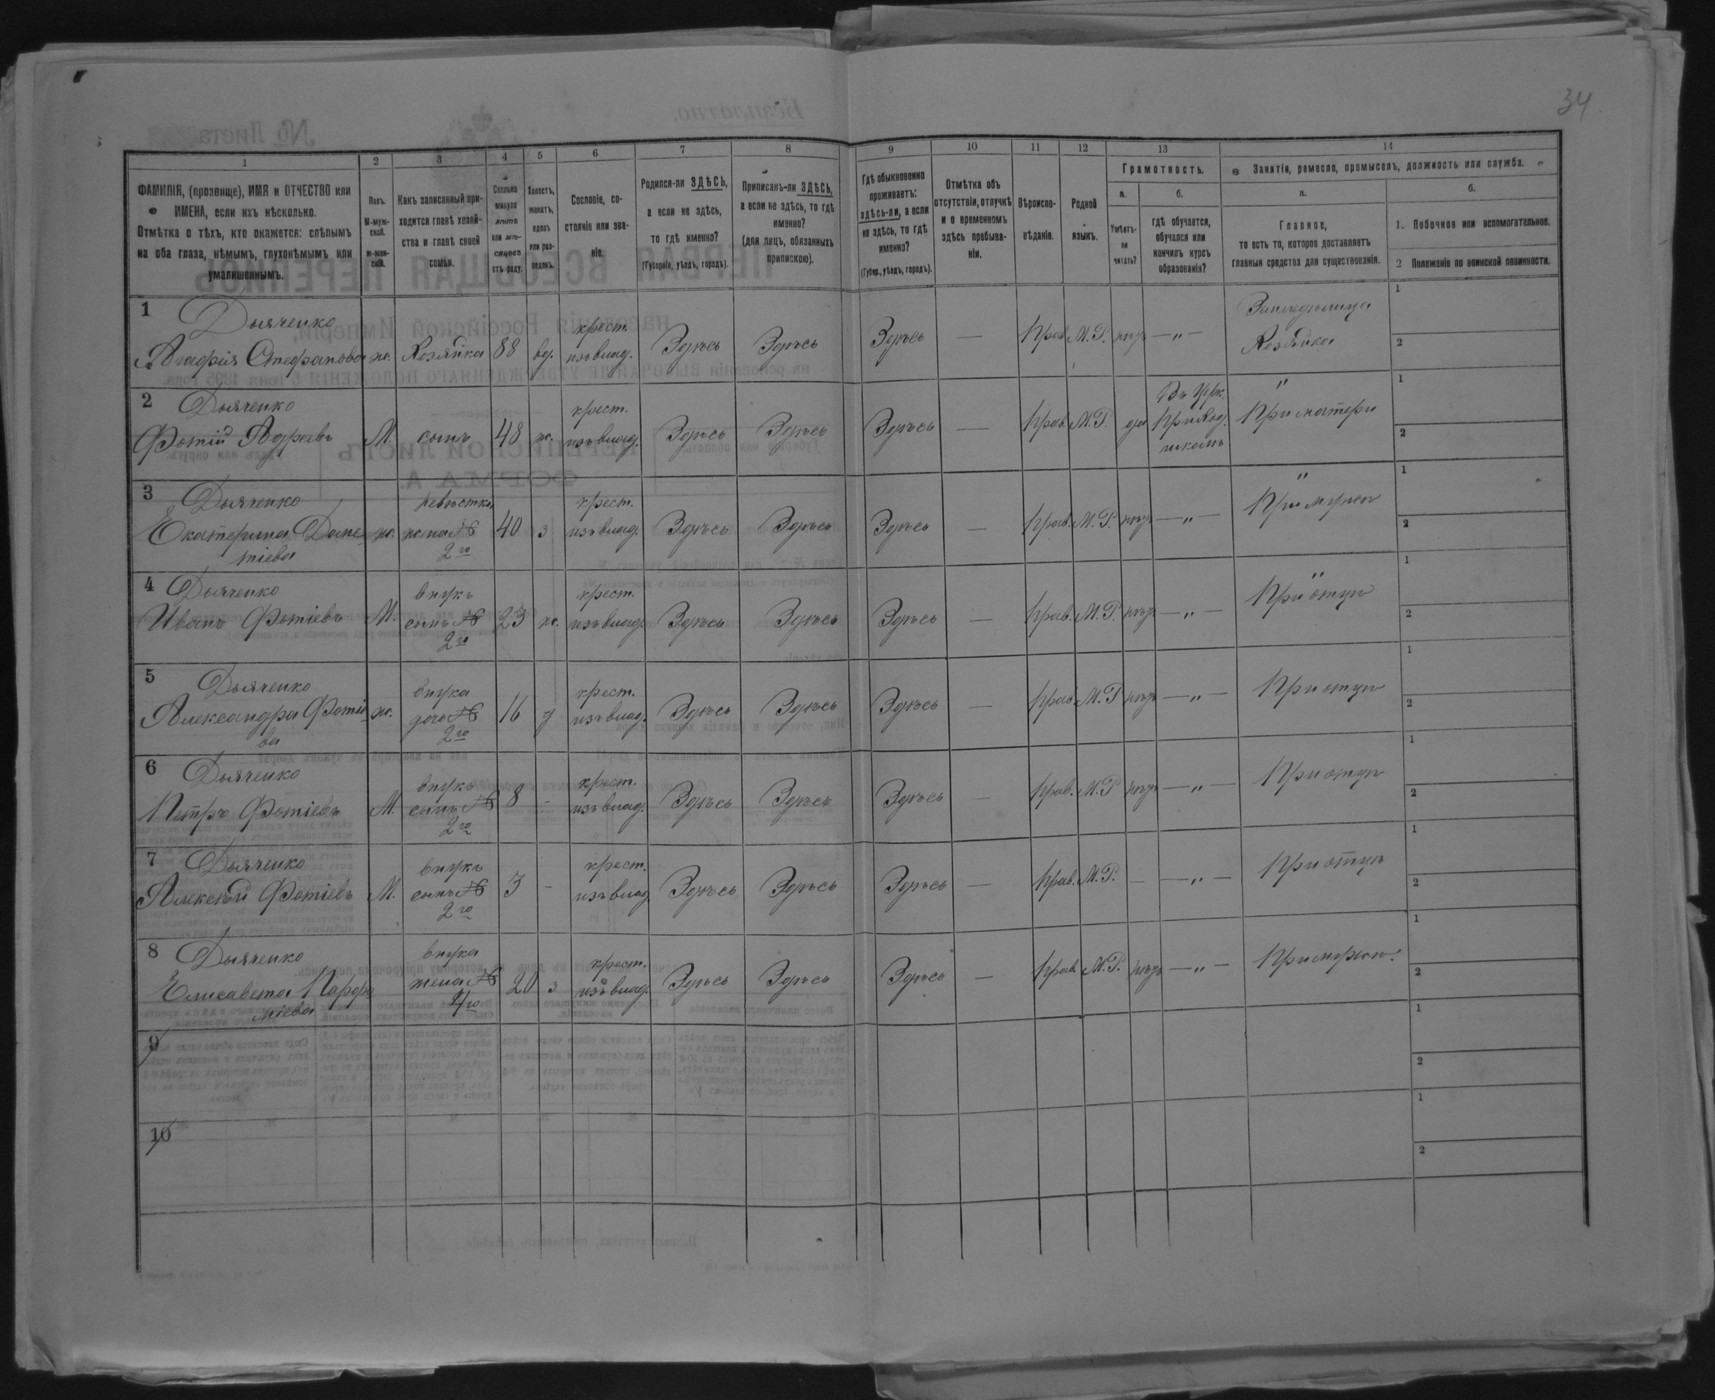 34
1 2 3 4 5 6 7 8 9 10 11 12 13 14
ФАМИЛІЯ, (прозвище), ИМЯ и ОТЧЕСТВО или
ИМЕНА, если ихъ нѣсколько.
Отмѣтка о тѣхъ, кто окажется: слѣпымъ
на оба глаза, нѣмымъ, глухонѣмымъ или
умалишеннымъ.
Полъ.
М-муж-
ской.
Ж-жен-
скій.
Какъ записанный при-
ходится главѣ хозяй-
ства и главѣ своей
семьи.
Сколько
минуло
лѣтъ
или мѣ-
сяцевъ
отъ роду.
Холостъ,
женатъ,
вдовъ
или раз-
веденъ.
Сословіе, со-
стояніе или зва-
ніе.
Родился-ли ЗДѢСЬ,
а если не здѣсь,
то гдѣ именно?
(Губернія, уѣздъ, городъ).
Приписанъ-ли ЗДѢСЬ,
а если не здѣсь, то гдѣ
именно?
(для лицъ, обязанныхъ
припискою).
Гдѣ обыкновенно
проживаетъ:
здѣсь-ли, а если
не здѣсь, то гдѣ
именно?
(Губер., уѣздъ, городъ).
Отмѣтка объ
отсутствіи, отлучкѣ
и о временномъ
здѣсь пребыва-
ніи.
Вѣроиспо-
вѣданіе.
Родной
языкъ.
Грамотность.
а.
Умѣетъ-
ли
читать?
б.
гдѣ обучается,
обучался или
кончилъ курсъ
образованія?
Занятіе, ремесло, промыселъ, должность или служба.
а.
Главное,
то есть то, которое доставляетъ
главныя средства для существованія.
б.
1. Побочное или вспомогательное.
2 Положеніе по воинской повинности.
1 Дьяченко
Агафія Стефанова ж. Хозяйка 88 вд. крест. изъ влад. Здѣсь Здѣсь Здѣсь — Прав. М.Р. нѣтъ — „ — Хозяйка 1 2
2 Дьяченко
Фотій Андреевъ М. сынъ 48 ж. крест. изъ влад. Здѣсь Здѣсь Здѣсь — Прав. М.Р. да Въ Црк. приход. школѣ При матери 1 2
3 Дьяченко
Екатерина Доме-
тіева ж. невѣстка жена № 2го 40 з крест. изъ влад. Здѣсь Здѣсь Здѣсь — Прав. М.Р. нѣтъ — „ — При мужѣ 1 2
4 Дьяченко
Иванъ Фотіевъ М. внукъ сынъ № 2го 23 ж. крест. изъ влад. Здѣсь Здѣсь Здѣсь — Прав. М.Р. нѣтъ — „ — При отцѣ 1 2
5 Дьяченко
Александра Фотіе-
ва ж. внука дочь № 2го 16 д крест. изъ влад. Здѣсь Здѣсь Здѣсь — Прав. М.Р. нѣтъ — „ — При отцѣ 1 2
6 Дьяченко
Петръ Фотіевъ М. внукъ сынъ № 2го 8 - крест. изъ влад. Здѣсь Здѣсь Здѣсь — Прав. М.Р. нѣтъ — „ — При отцѣ 1 2
7 Дьяченко
Алексѣй Фотіевъ М. внукъ сынъ № 2го 3 - крест. изъ влад. Здѣсь Здѣсь Здѣсь — Прав. М.Р. — — „ — При отцѣ 1 2
8 Дьяченко
Елисавета Парфе-
міева внука жена № 4го 20 з крест. изъ влад. Здѣсь Здѣсь Здѣсь — Прав. М.Р. нѣтъ — „ — При мужѣ. 1 2
9 1 2
10 1 2